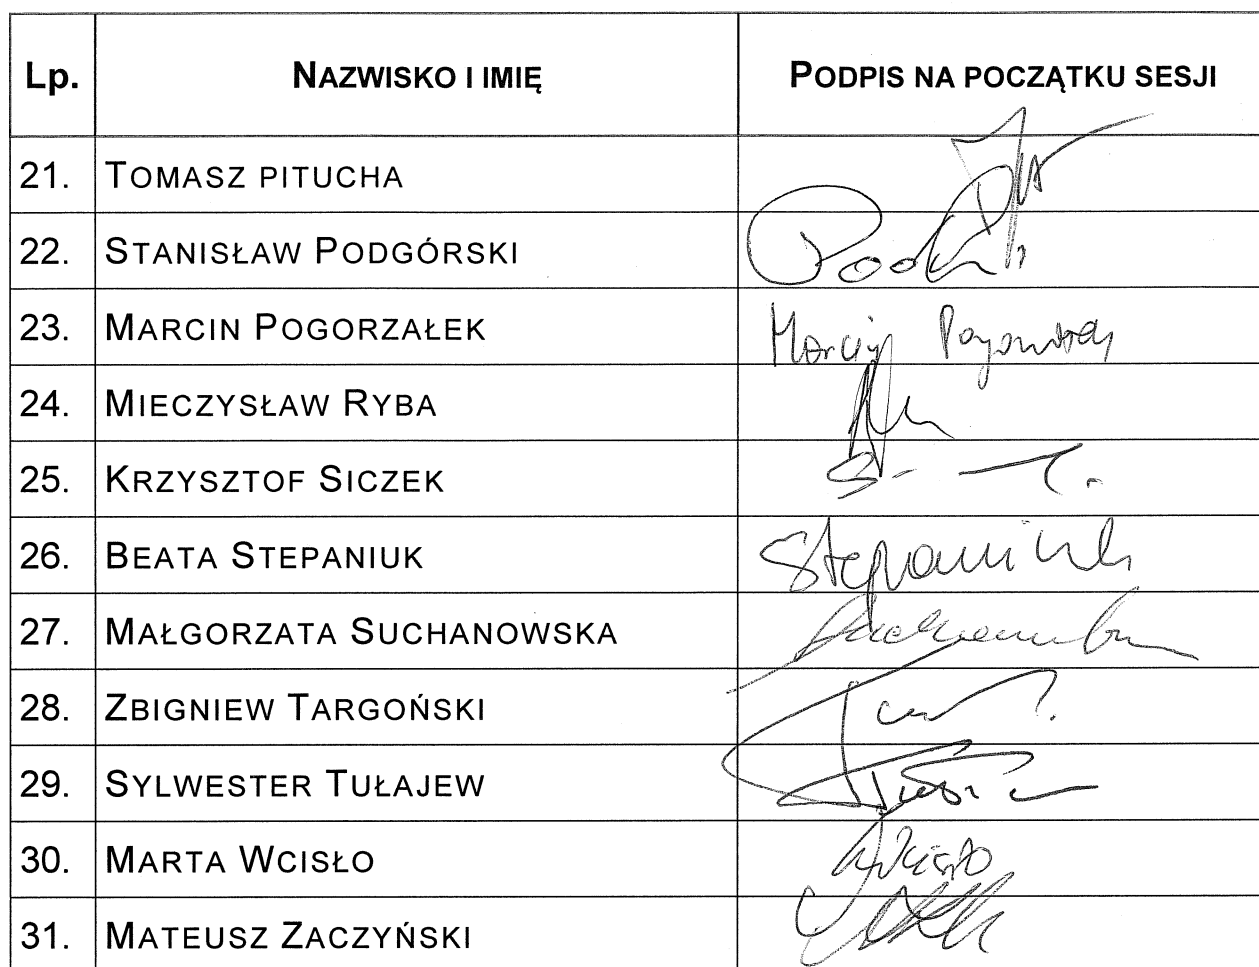 Lp. NAZWISKO I IMIĘ PODPIS NA POCZĄTKU SESJI
21. TOMASZ PITUCHA
22. STANISŁAW PODGÓRSKI
23. MARCIN POGORZAŁEK Marcin
24. MIECZYSŁAW RYBA
25. KRZYSZTOF SICZEK
26. BEATA STEPANIUK Stepaniuk
27. MAŁGORZATA SUCHANOWSKA
28. ZBIGNIEW TARGOŃSKI
29. SYLWESTER TUŁAJEW
30. MARTA WCISŁO
31. MATEUSZ ZACZYŃSKI